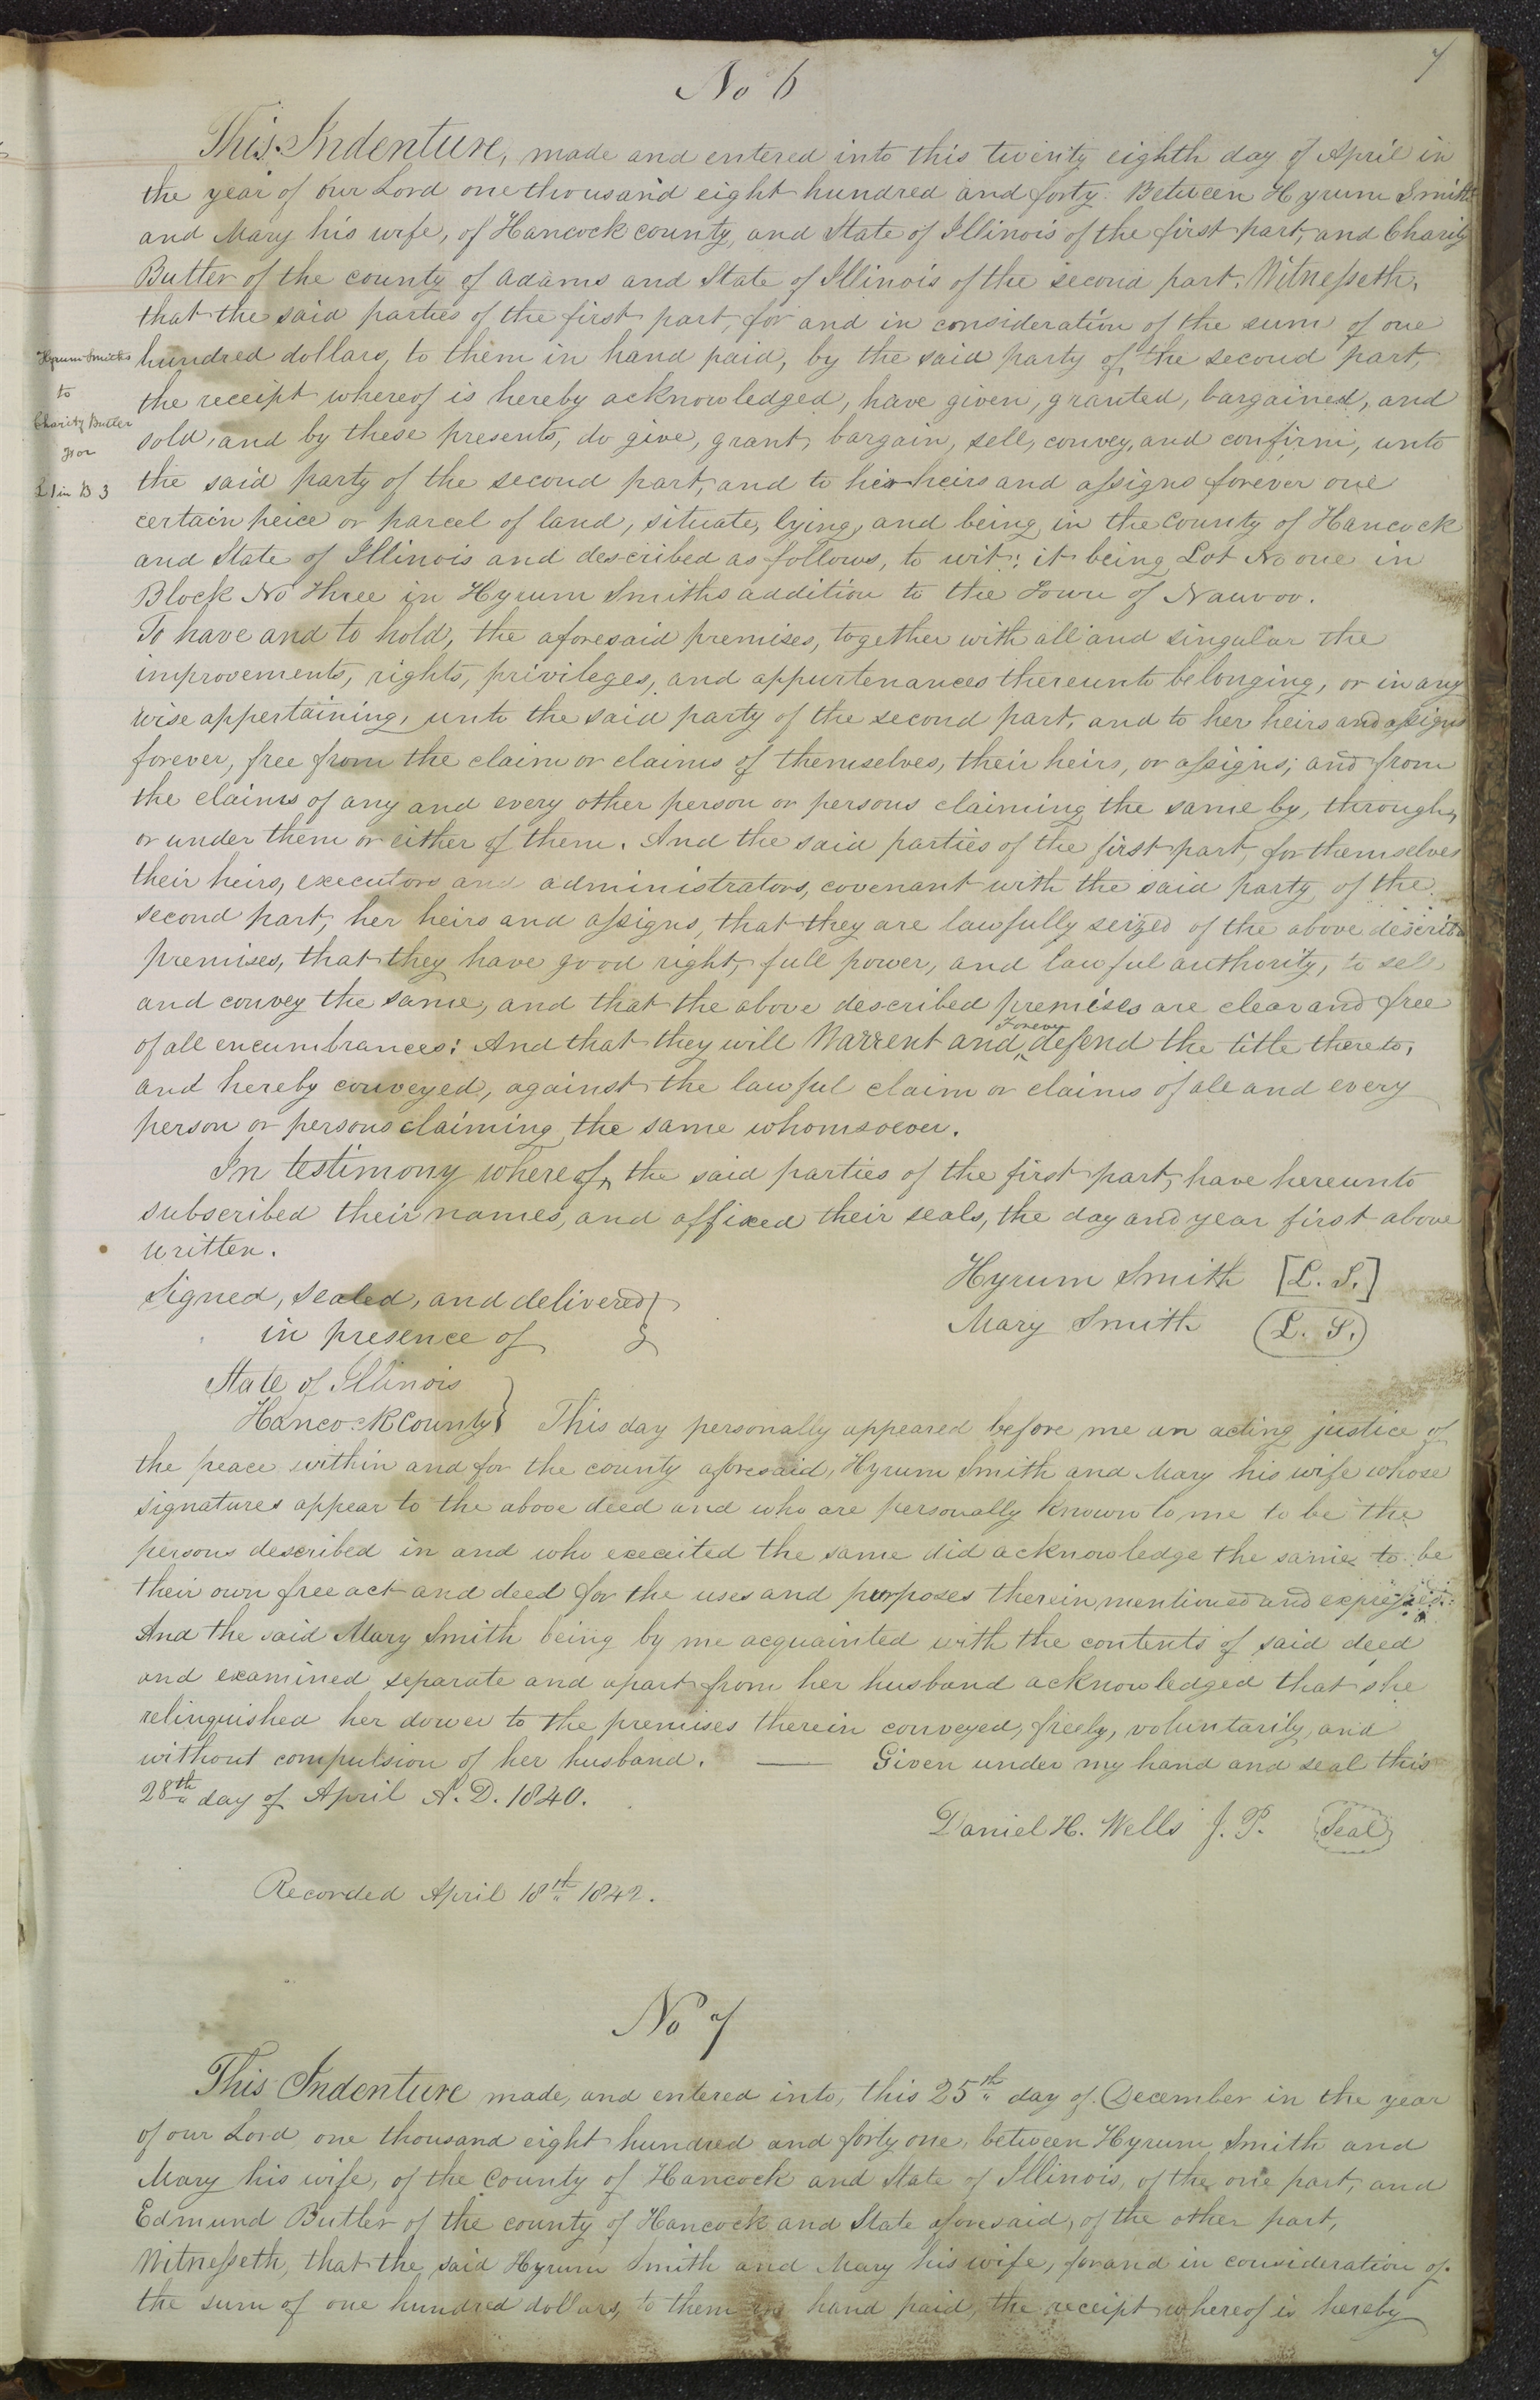 7
No 6
This Indenture, made and entered into this twenty eighth day of April in
the year of our Lord one thousand eight hundred and forty. Between Hyrum Smith
and Mary his wife, of Hancock county, and State of Illinois of the first part, and Charity
Butler of the county of Adams and State of Illinois of the second part. Witnesseth,
that the said parties of the first part, for and in consideration of the sum of one
hundred dollars, to them in hand paid, by the said party of the second part,
the receipt whereof is hereby acknowledged, have given, granted, bargained, and
sold, and by these presents, do give, grant, bargain, sell, convey, and confirm, unto
the said party of the second part, and to her heirs and assigns forever one
certain peice or parcel of land, situate, lying, and being in the county of Hancock
and State of Illinois and described as follows, to wit: it being Lot No one in
Block No Three in Hyrum Smiths addition to the Town of Nauvoo.
Hyrum Smiths
to
Charity Butler
for
L 1 in B 3
To have and to hold, the aforesaid premises, together with all and singular the
improvements, rights, privileges, and appurtenances thereunto belonging, or in any
wise appertaining, unto the said party of the second part, and to her heirs and assigns
forever, free from the claim or claims of themselves, their heirs, or assigns; and from
the claims of any and every other person or persons claiming the same by, through,
or under them or either of them. And the said parties of the first part, for themselves
their heirs, executors and administrators, covenant with the said party of the
second part, her heirs and assigns, that they are lawfully seized of the above describd
premises, that they have good right, full power, and lawful authority, to sell
and convey the same, and that the above described premises are clear and free
of all encumbrances: And that they will Warrent and Forever defend the title thereto,
and hereby conveyed, against the lawful claim or claims of all and every
person or persons claiming the same whomsoever.
In testimony whereof, the said parties of the first part, have hereunto
subscribed their names, and affixed their seals, the day and year first above
written.
Hyrum Smith [L. S.]
Mary Smith (L. S.)
Signed, sealed, and delivered }
in presence of }
State of Illinois }
Hancock County } This day personally appeared before me an acting justice of
the peace within and for the county aforesaid, Hyrum Smith and Mary his wife whose
signatures appear to the above deed and who are personally known to me to be the
persons described in and who executed the same did acknowledge the same to be
their own free act and deed for the uses and purposes therein mentioned and expressed.
And the said Mary Smith being by me acquainted with the contents of said deed
and examined separate and apart from her husband acknowledged that she
relinquished her dower to the premises therein conveyed, freely, voluntarily, and
without compulsion of her husband. — Given under my hand and seal this
28th day of April A. D. 1840.
Daniel H. Wells J. P. Seal
Recorded April 18th 1842.
No 7
This Indenture made, and entered into, this 25th day of December in the year
of our Lord one thousand eight hundred and forty one, between Hyrum Smith and
Mary his wife, of the County of Hancock and State of Illinois, of the one part, and
Edmund Butler of the county of Hancock and State aforesaid, of the other part,
Witnesseth, that the said Hyrum Smith and Mary his wife, for and in consideration of
the sum of one hundred dollars, to them in hand paid, the receipt whereof is hereby